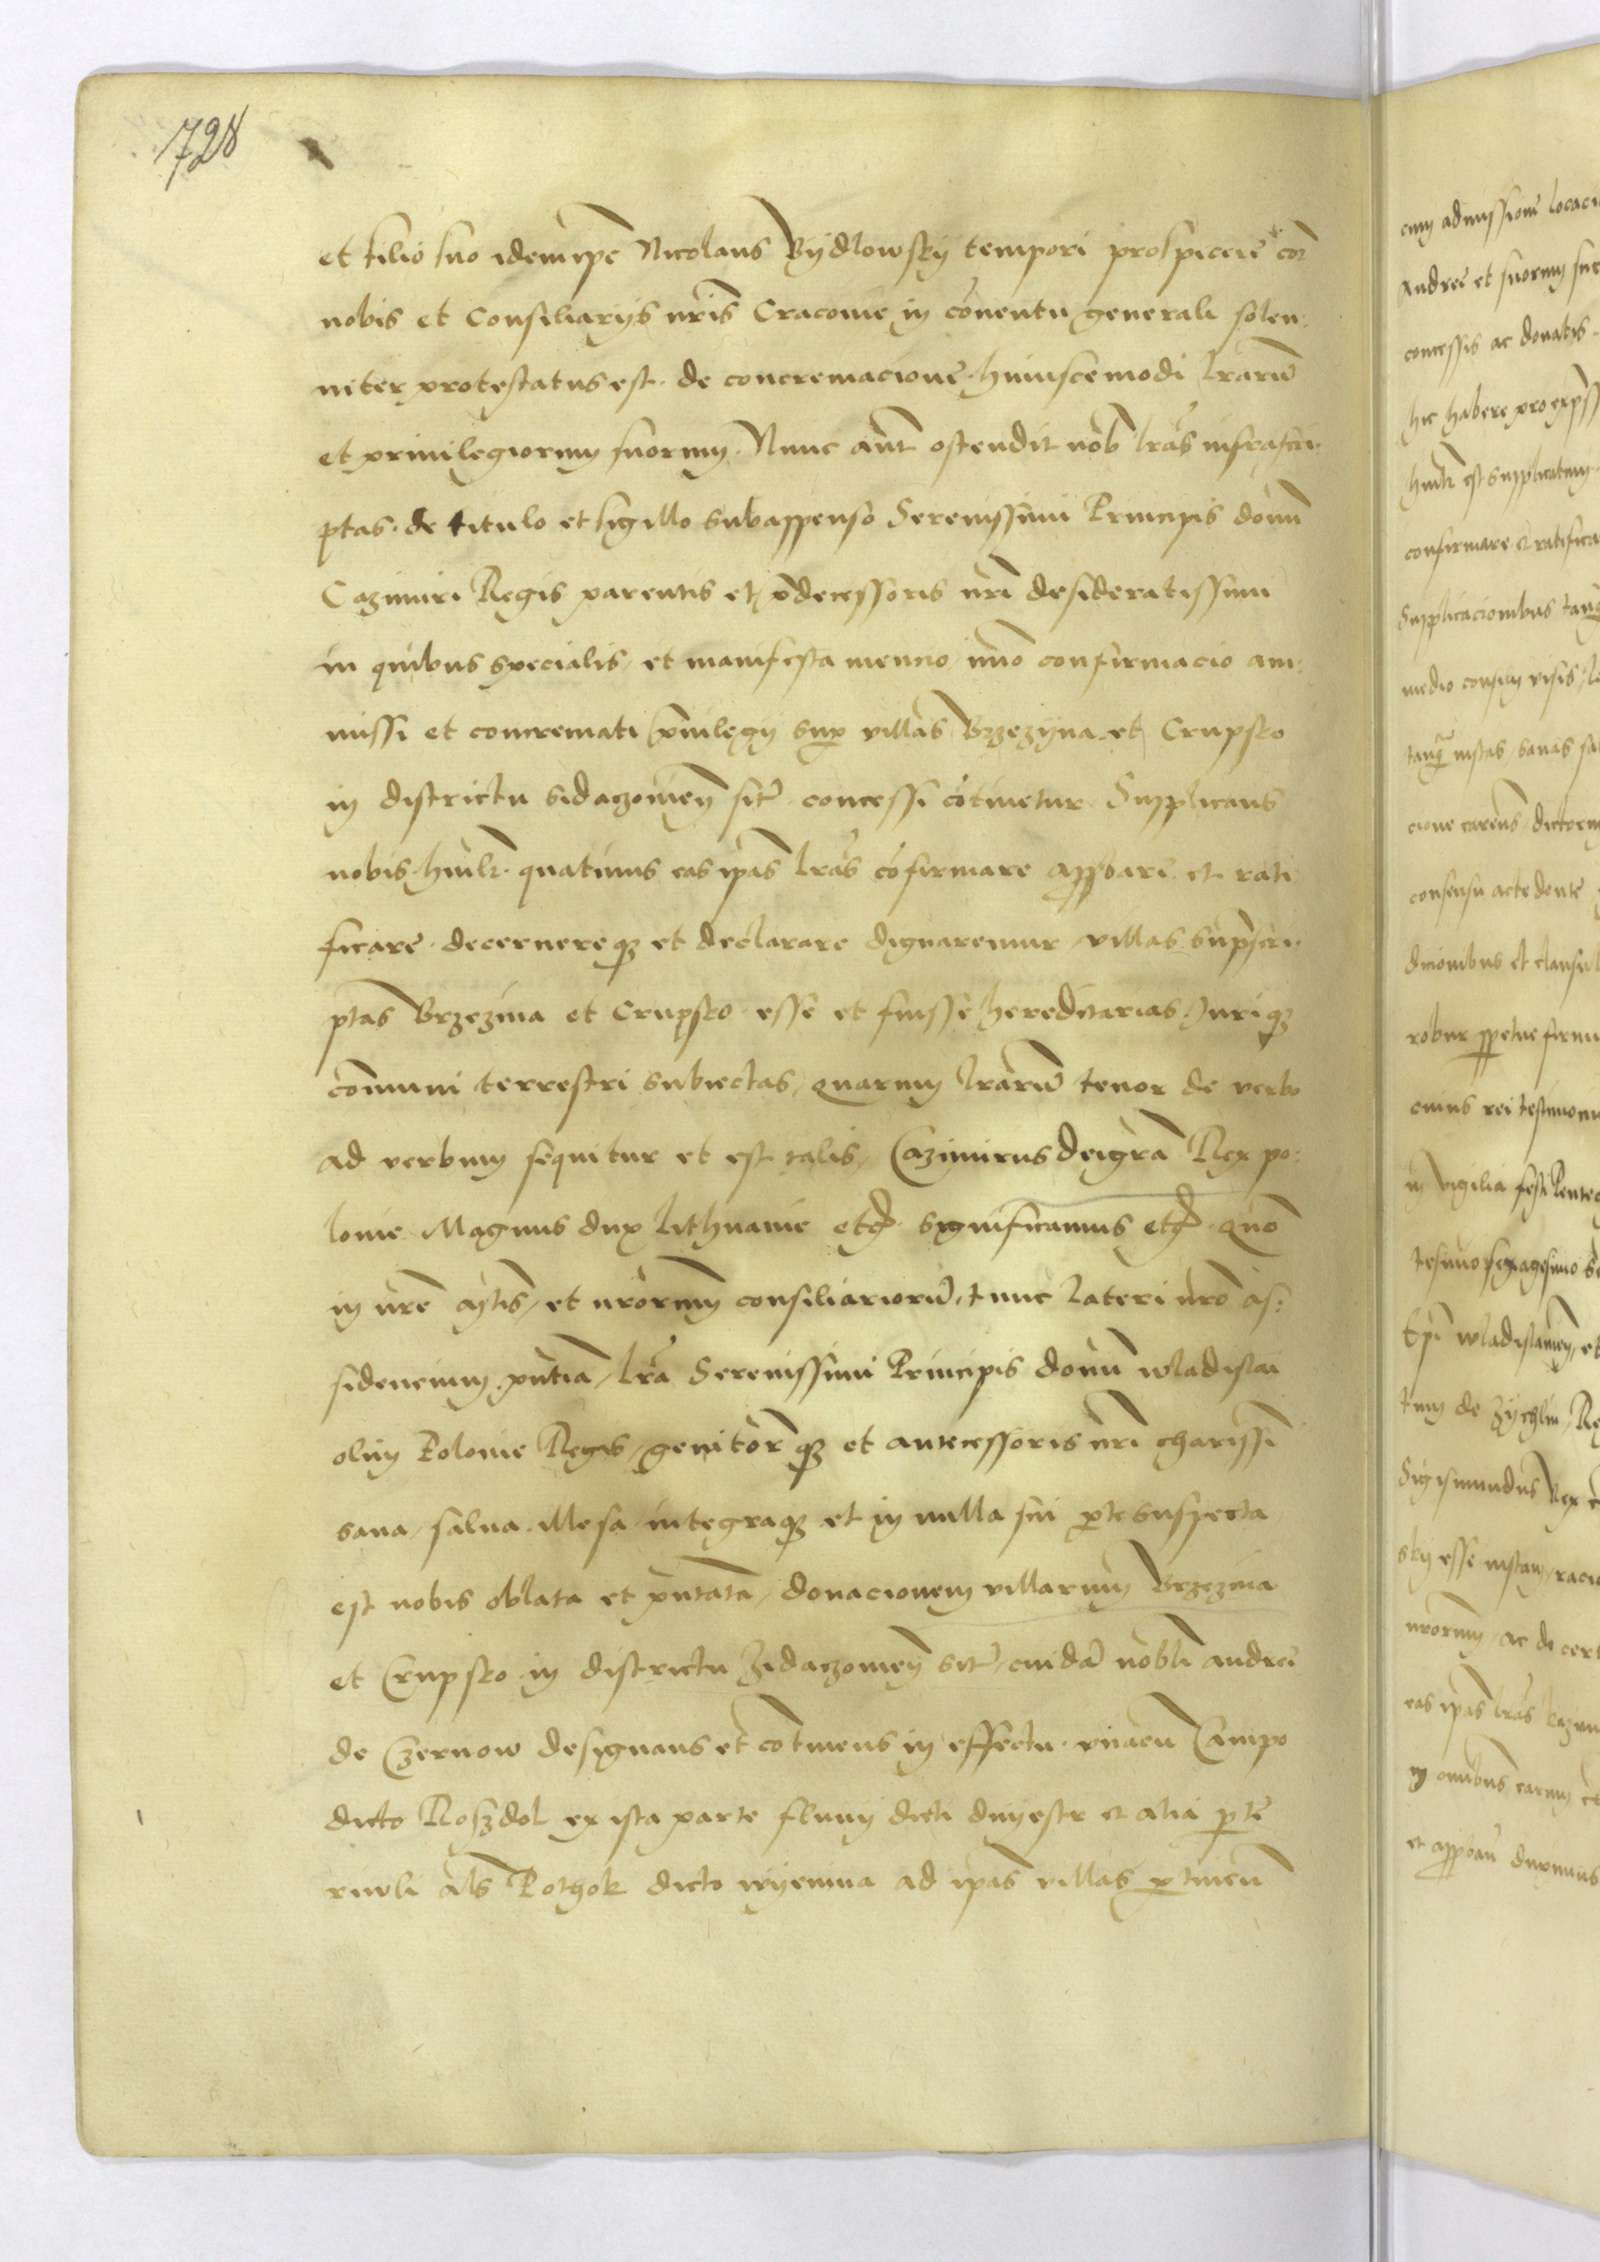 728
et filio suo idem ipē Nicolaus Bydlowsky tempori prospicere cor̃
nobis et Consiliarijs nr̄is Cracovie in cōnentu generali solen:
niter protestatus est. de concremacione huiuscemodi lrarū
et privilegiorum suorum. Nunc aūt ostendit nob̄ lrās infrascri
ptas. de titulo et sigillo subappenso Serenissimi Principis domī
Cazimiri Regis parentis et p̄decessoris nr̄i desideratissimi
in quibus specialis, et manifesta mencio, imo confirmacio am:
missi et concremati p̄uilegij sup̱ villas Brzezyna et Crupsko
in districtu Sidaczovien̄ sit̄ concessi cōtinetur. Supplicans
nobis humlr̄. quatinus eas ip̄as lrās cōfirmare approbare et rati
ficare. decernereqȝ et declarare dignaremur villas sup̄scri:
ptas Brzezina et Crupsko esse et fuisse hereditarias Juriqȝ
cōmuni terrestri subiectas, quarum lrarū tenor de verbo
ad verbum sequitur et est talis, Cazimirus dei grā Rex po:
lonie Magnus dux Lithuanie etc̄. Significamus etc̄. quō
in nrē aȳtis, et nr̄orum consiliariorū, tunc lateri nr̄o as:
sidencium pn̄tia, lrā Serenissimi Principis domī wladislai
olim Polonie Regis, genitor̄ qȝ et antecessoris nr̄i charyssī
sana, salua, illesa, integraqȝ et in nulla sui p̱te suspecta
est nobis oblata et pn̄tata, donacionem villarum Brzezina
et Crupsko in districtu Zidaczovien̄ sit̄, cuidā nobli andree
de Czernow designans et cōtinens in effectu. vnacū Campo
dicto Roszdol ex ista parte fluuij dicti dnyestr et alia p̱te
riuuli als̄ Pothok dicto ad ip̄as villas p̱tinen̄
cum admissione locaci
Andree et suorum suc
concessis ac donatis.
hic habere pro exp̄ss
humlr̄ est supplicatum
confirmare et ratifica
Supplicacionibus tanq
medio consilij visis, l
tanqȝ iustas, sanas sal
cione carens, dictorum
consensu accedente
dicionibus et clausul
robur p̱petue firmi
cuius rei testimoniu
in vigilia festi Pentec
tesimo sexagesimo se
Ep̄i wladislavien̄, et
tum de Zychlin, Re
Sigismundus Rex
sky esse iustam, racio
nr̄orum, ac de cert
eas ip̄as lrās Kazimi
in omībus earum
et approbaū duximus